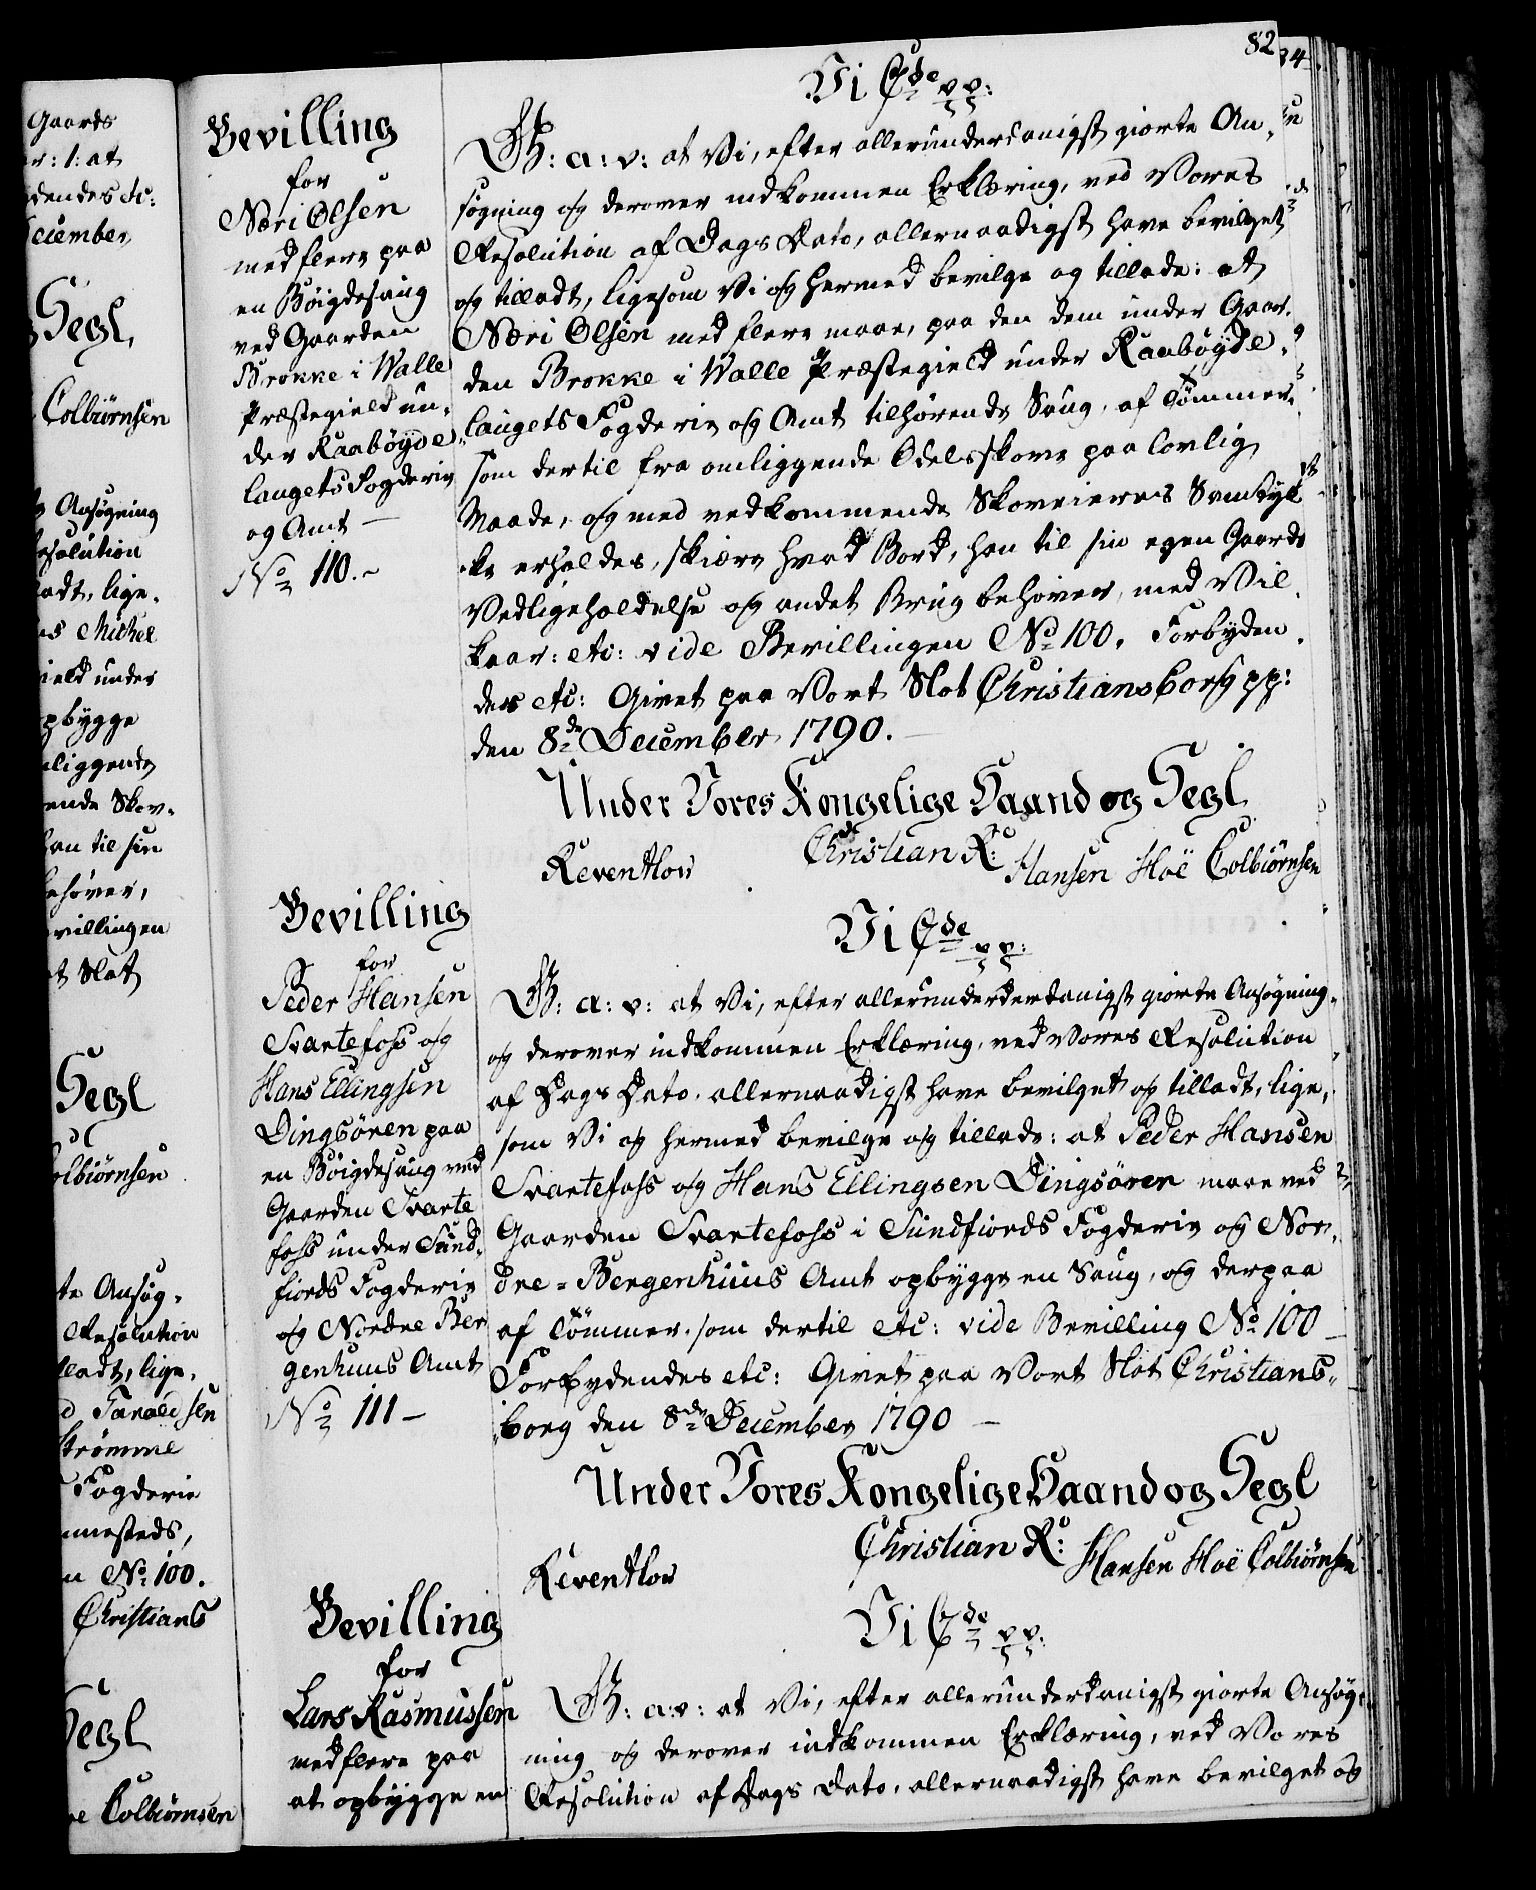 82
Vi C 7de pp:
Bevilling
for
Næri Olsen
med flere paa
en Böigdesaug
ved Gaarden
Brokke i Walle
Præstegield un-
der Raabøyde-
laugets Fogderie
og Amt —
No 110.~
G: a: v: at Vi, efter allerunderdanigst giorte An-
søgning og derover indkommen Erklæring, ved Vores
Resolution af Dags Dato, allernaadigst have bevilget
og tilladt, ligesom Vi og hermed bevilge og tillade: at
Næri Olsen med flere maae, paa den dem under Gaar-
den Brokke i Walle Præstegield under Raabøyde-
laugets Fogderie og Amt tilhørende Saug, af Tømmer,
som dertil fra omliggende Odelsskove paa lovlig
Maade, og med vedkommende Skoveieres Samtyk-
ke erholdes, skiære hvad Bord, han til sin egen Gaards
Vedligeholdelse og andet Brug behøver, med Vil-
kaar: etc: vide Bevillingen No 100. Forbyden-
des etc: Givet paa Vort Slot Christiansborg pp:
den 8de December 1790. —
Under Vores Kongelige Haand og Segl
Christian R:
Reventlow Hansen Hoë Colbiørnsen
Vi C 7de pp:
Bevilling
for
Peder Hansen
Svartefoss og
Hans Ellingsen
Dingsören paa
en Böigdesaug ved
Gaarden Svarte
foss under Sund-
fiords Fogderie
og Nordre Ber
genhuus Amt
No 111 —
G: a: v: at Vi, efter allerunderderdanigst giorte Ansøgning
og derover indkommen Erklæring, ved Vores Resolution
af Dags Dato, allernaadigst have bevilget og tilladt, lige-
som Vi og hermed bevilge og tillade: at Peder Hansen
Svartefoss og Hans Ellingsen Dingsören maae ved
Gaarden Svartefoss i Sundfiords Fogderie og Nor-
dre-Bergenhuus Amt opbygge en Saug, og derpaa
af Tømmer, som dertil etc: vide Bevilling No 100 —
Forbydendes etc: Givet paa Vort Slot Christians-
borg den 8de December 1790 —
Under Vores Kongelige Haand og Segl
Christian R:
Reventlow Hansen Hoë Colbiørnsen
Vi C 7de pp:
Bevilling
for
Lars Rasmussen
med flere paa
at opbygge en
G: a: v: at Vi, efter allerunderdanigst giorte Ansøg-
ning og derover indkommen Erklæring, ved Vores
Resolution af Dags Dato, allernaadigst have bevilget og